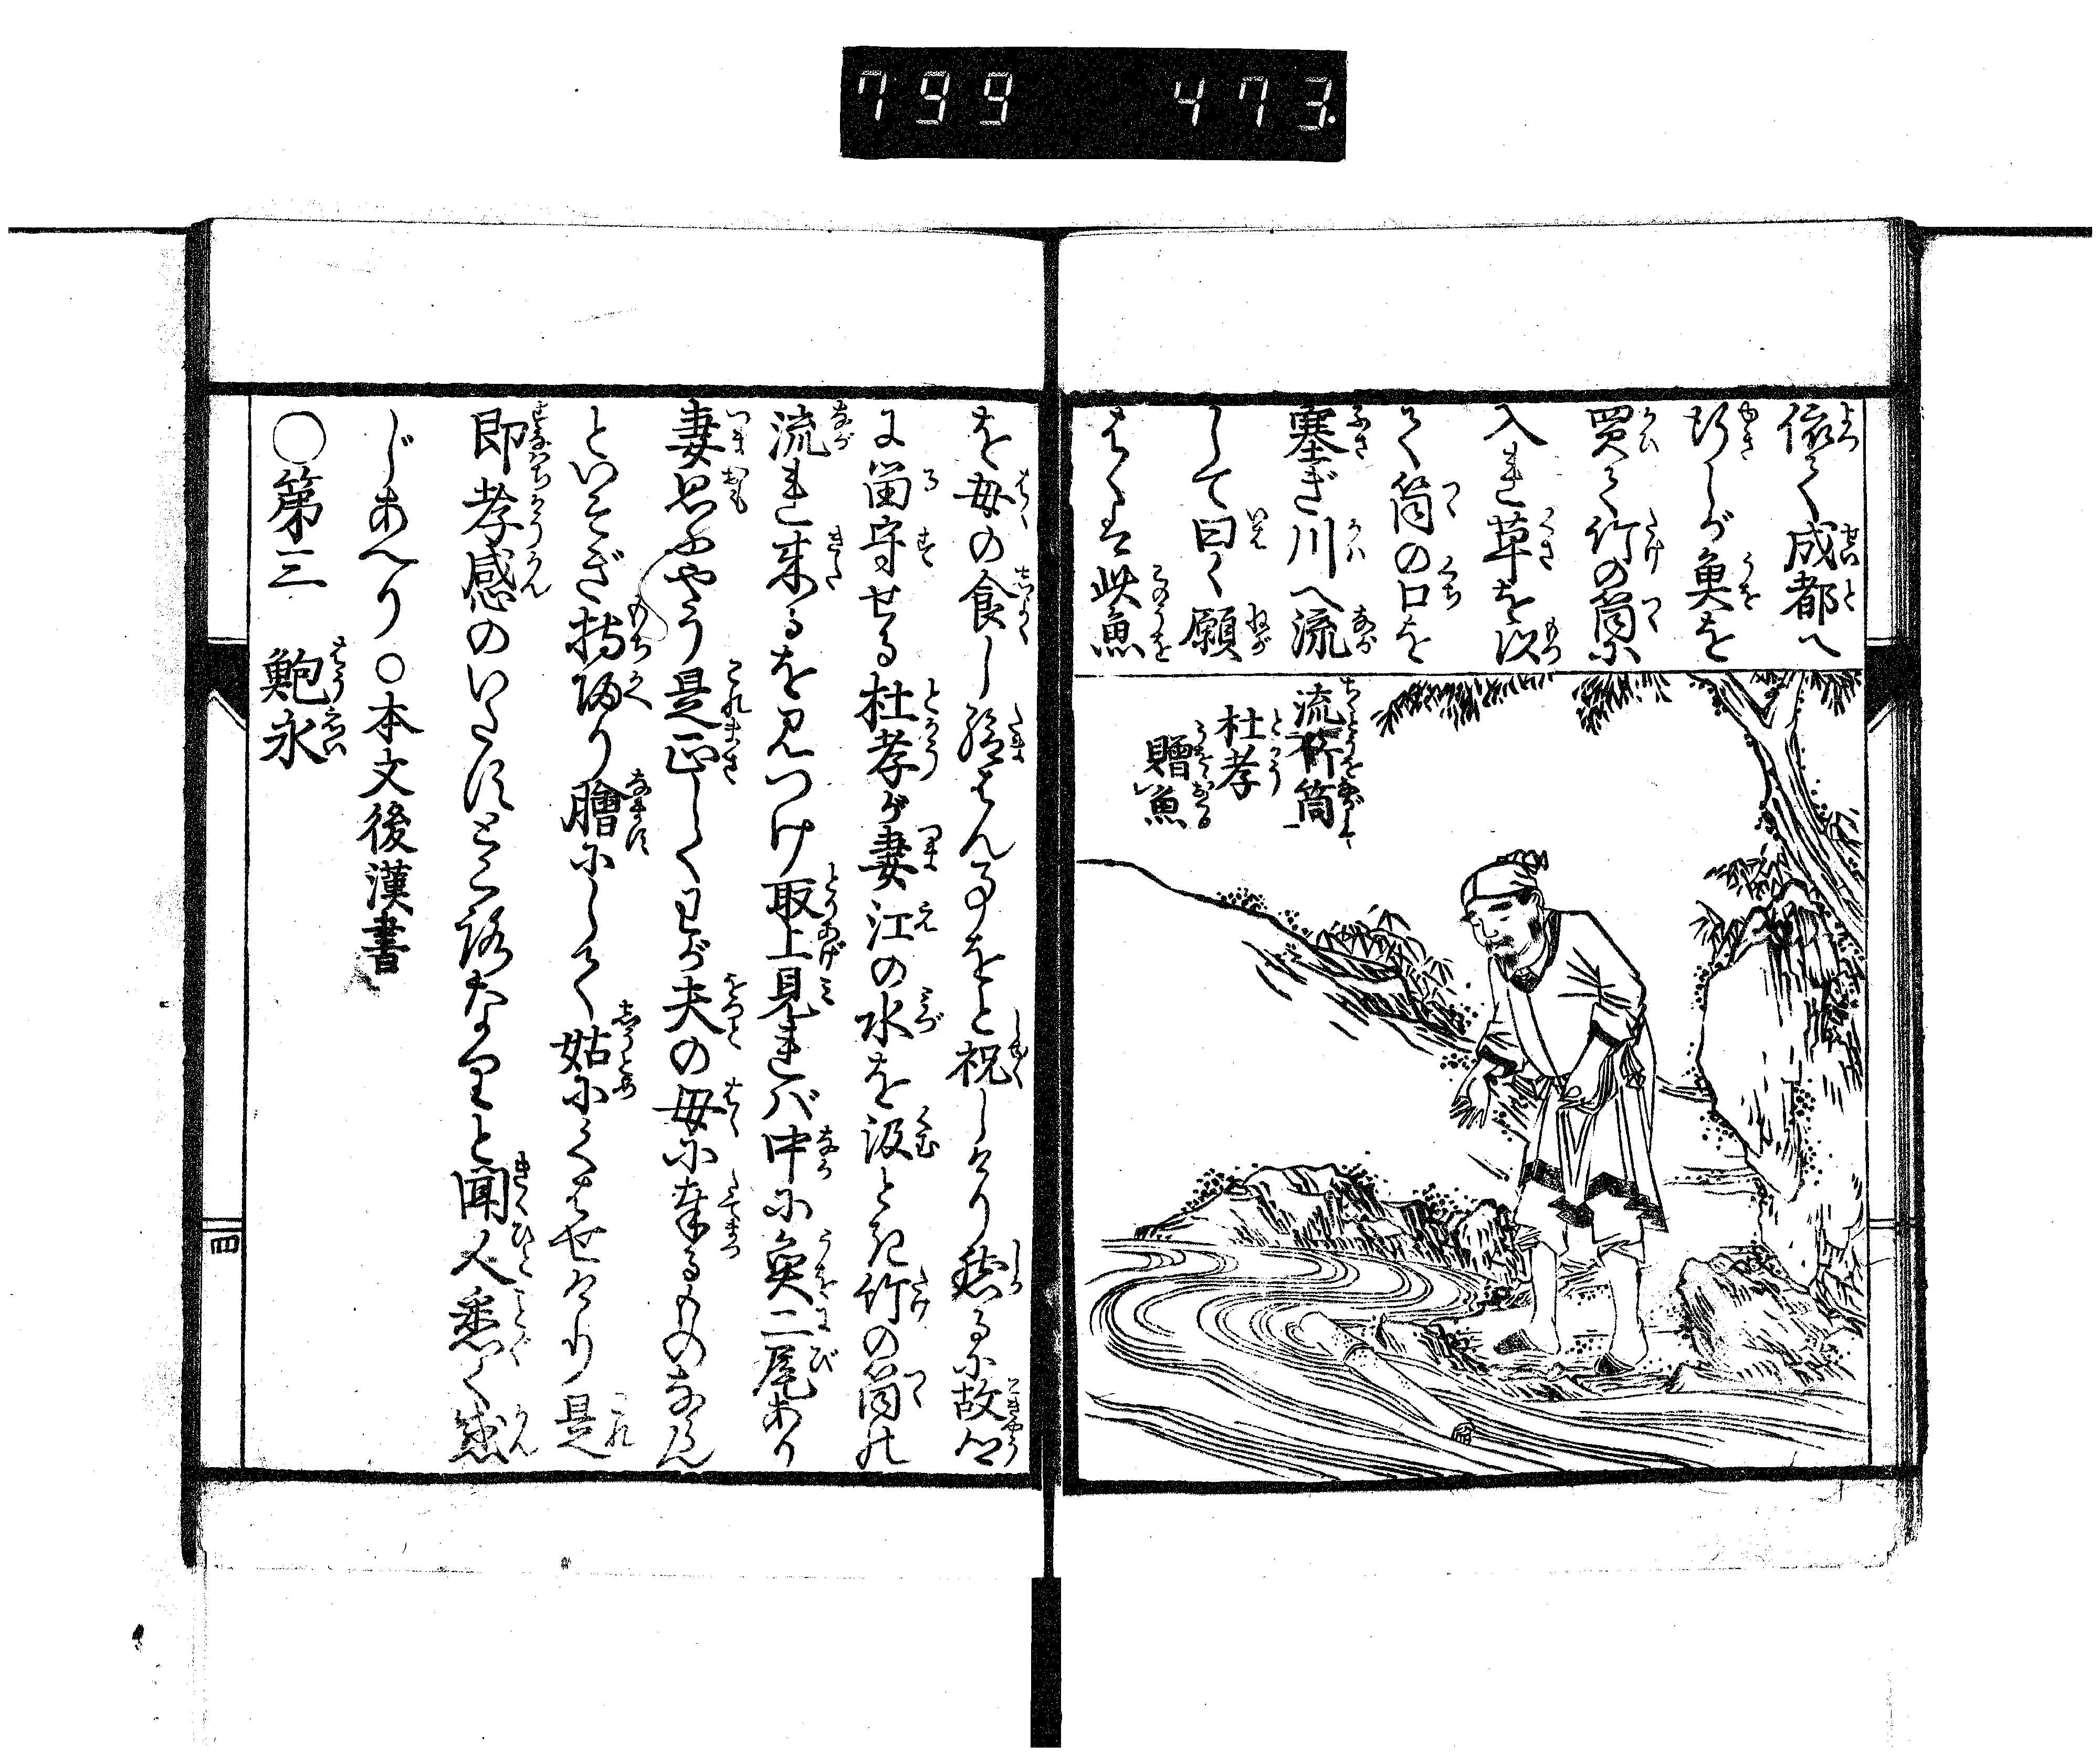 799 473.
依て成都へ
行しが魚を
買て竹の筒に
入れ草を以
て筒の口を
塞ぎ川へ流
して曰く願
はくは此魚
流竹筒
杜孝
贈魚
を母の食し給はん事をと祝しけり然るに故郷
に留守せる杜孝が妻江の水を汲とき竹の筒の
流れ来るを見つけ取上見れバ中に魚二尾あり
妻思ふやう是正しくわが夫の母に奉るものならん
といそぎ持帰り膾にして姑にくはせけり是
即孝感のいたすところなりと聞人悉く感
じあへり○本文後漢書
○第三 鮑永
四